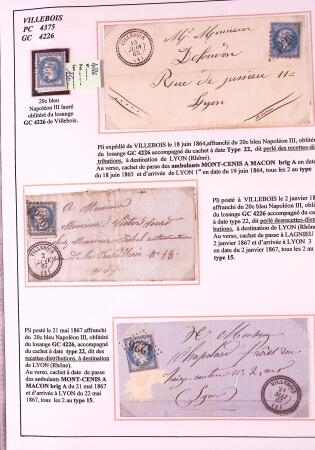 VILLEBOIS
PC 4375
GC 4226
20c bleu
Napoléon III lauré
oblitéré du losange
GC 4226 de Villebois.
VILLEBOIS
JUIN
65
(1)
A Monsieur
Monsieur
Rue de Jussieu 11
Lyon
Pli expédié de VILLEBOIS le 18 juin 1864,affranchi du 20c bleu Napoléon III, oblitéré
du losange GC 4226 accompagné du cachet à date Type 22, dit perlé des recettes-dis-
tributions, à destination de LYON (Rhône).
Au verso, cachet de passe des ambulants MONT-CENIS A MACON brig A en date
du 18 juin 1865 et d'arrivée de LYON 1er en date du 19 juin 1864, tous les 2 au type
A Monsieur
Monsieur Victor
VILLEBOIS
(1)
Lyon
Pli posté à VILLEBOIS le 2 janvier 18
affranchi du 20c bleu Napoléon III, oblit
du losange GC 4226, accompagné du
cachet à date type 22, dit perlé des recet
butions, à destination de LYON (Rhône).
Au verso, cachet de passe à LAGNIEU
2 janvier 1867 et d'arrivée à LYON 3
en date du 2 janvier 1867, tous les 2 au
type 15.
Pli posté le 21 mai 1867 affranchi
du 20c bleu Napoléon III, oblitéré
du losange GC 4226, accompagné
du cachet à date type 22, dit des
recettes-distributions, à destination
de LYON (Rhône).
Au verso, cachet à date de passe
des ambulants MONT-CENIS A
MACON brig A du 21 mai 1867
et d'arrivée à LYON du 22 mai
1867, tous les 2 au type 15.
Monsieur
Lyon
VILLEBOIS
21
MAI
67
(1)